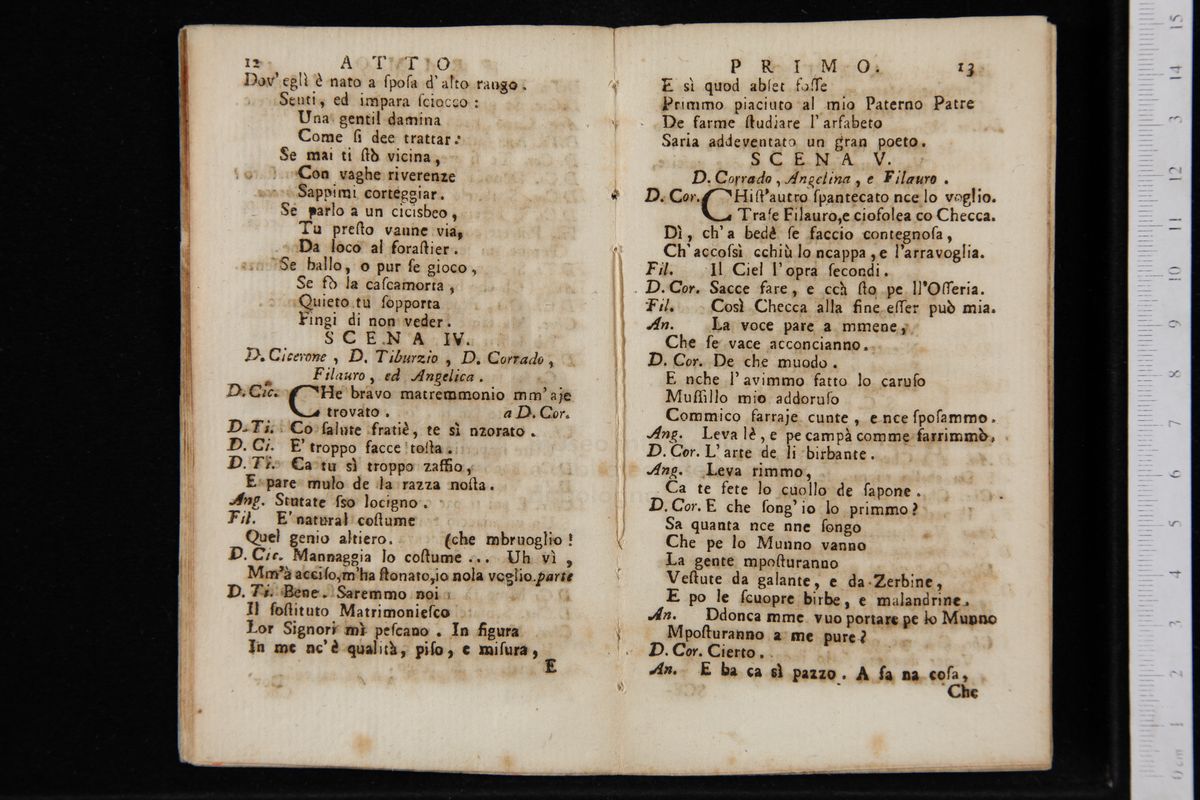 12 ATTO
Dov' egli è nato a ſpoſa d'alto rango.
Senti, ed impara ſciocco:
Una gentil damina
Come ſi dee trattar:
Se mai ti ſtò vicina,
Con vaghe riverenze
Sappimi corteggiar.
Se parlo a un cicisbeo,
Tu preſto vanne via,
Da loco al foraſtier.
Se ballo, o pur ſe gioco,
Se fò la caſcamorta,
Quieto tu ſopporta
Fingi di non veder.
SCENA IV.
D. Cicerone, D. Tiburzio, D. Corrado,
Filauro, ed Angelica.
D. Cic. CHe bravo matremmonio mm'aje
trovato. a D. Cor.
D. Ti. Co ſalute fratiè, te sì nzorato.
D. Ci. E' troppo facce toſta.
D. Ti. Ca tu sì troppo zaffio,
E pare mulo de la razza noſta.
Ang. Stutate ſso locigno.
Fil. E' natural coſtume
Quel genio altiero. (che mbruoglio!
D. Cic. Mannaggia lo coſtume... Uh vì,
Mm'à acciſo,m'ha ſtonato,io nola voglio.parte
D. Ti. Bene. Saremmo noi
Il ſoſtituto Matrimonieſco
Lor Signori mì peſcano. In figura
In me nc'è qualità, piſo, e miſura,
E
PRIMO. 13
E sì quod abſet foſſe
Primmo piaciuto al mio Paterno Patre
De farme ſtudiare l'arfabeto
Saria addeventato un gran poeto.
SCENA V.
D. Corrado, Angelina, e Filauro.
D. Cor. CHiſt'autro ſpantecato nce lo voglio.
Traſe Filauro,e ciofolea co Checca.
Dì, ch'a bedè ſe faccio contegnoſa,
Ch'accoſsì cchiù lo ncappa, e l'arravoglia.
Fil. Il Ciel l'opra ſecondi.
D. Cor. Sacce fare, e ccà ſto pe ll'Oſſeria.
Fil. Così Checca alla fine eſſer può mia.
An. La voce pare a mmene,
Che ſe vace acconcianno.
D. Cor. De che muodo.
E nche l'avimmo fatto lo caruſo
Muſſillo mio addoruſo
Commico farraje cunte, e nce ſpoſammo.
Ang. Leva lè, e pe campà comme farrimmò,
D. Cor. L'arte de li birbante.
Ang. Leva rimmo,
Ca te fete lo cuollo de ſapone.
D. Cor. E che ſong' io lo primmo?
Sa quanta nce nne ſongo
Che pe lo Munno vanno
La gente mpoſturanno
Veſtute da galante, e da Zerbine,
E po le ſcuopre birbe, e malandrine.
An. Ddonca mme vuo portare pe lo Munno
Mpoſturanno a me pure?
D. Cor. Cierto.
An. E ba ca sì pazzo. A fa na coſa,
Che